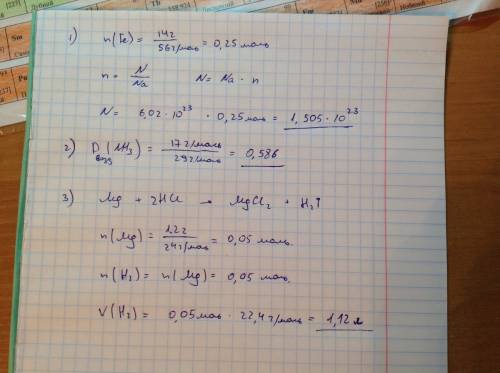 1) n(Fe) = 14г / 56г/моль = 0,25 моль
n = N / Na N = Na · n
N = 6,02 · 10²³ · 0,25 моль = 1,505 · 10²³
2) D возд (NH₃) = 17 г/моль / 29г/моль = 0,586
3) Mg + 2HCl → MgCl₂ + H₂↑
n(Mg) = 1,2г / 24г/моль = 0,05 моль.
n(H₂) = n(Mg) = 0,05 моль.
V(H₂) = 0,05 моль · 22,4 г/моль = 1,12 л